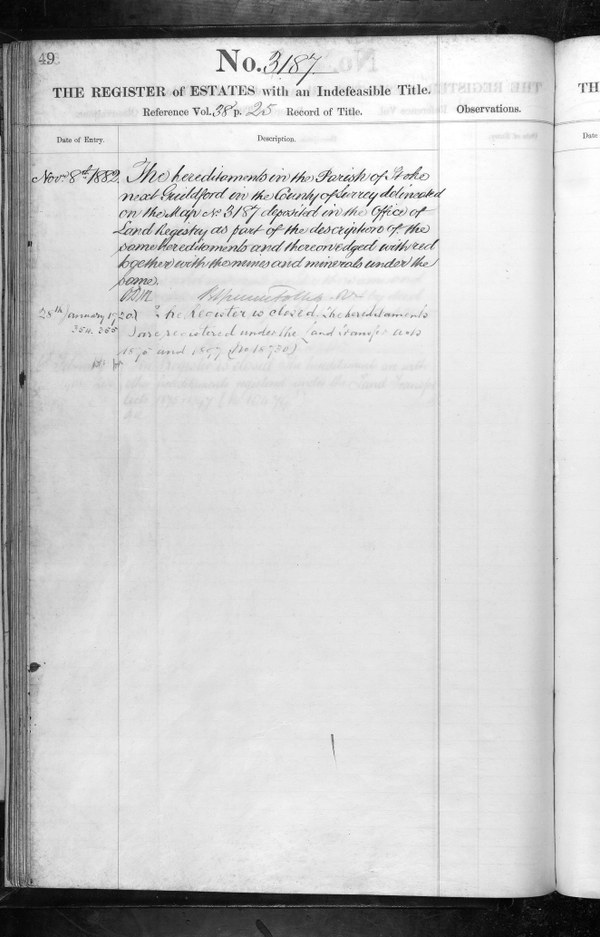 49
No. 3187
THE REGISTER of ESTATES with an Indefeasible Title.
Reference Vol. 38 p. 25 Record of Title.
Observations.
Date of Entry.
Description.
Novr 8th 1882. The hereditaments in the Parish of Stoke
next Guildford in the County of Surrey delineated
on the Map No 3187 deposited in the Office of
Land Registry as part of the description of the
same Hereditaments and thereon edged with red
together with the mines and minerals under the
same.
28th January 1920 The Register is closed. The hereditaments
354. 355 are registered under the Land Transfer Acts
1875 and 1897 (No 18730)
TH
Date